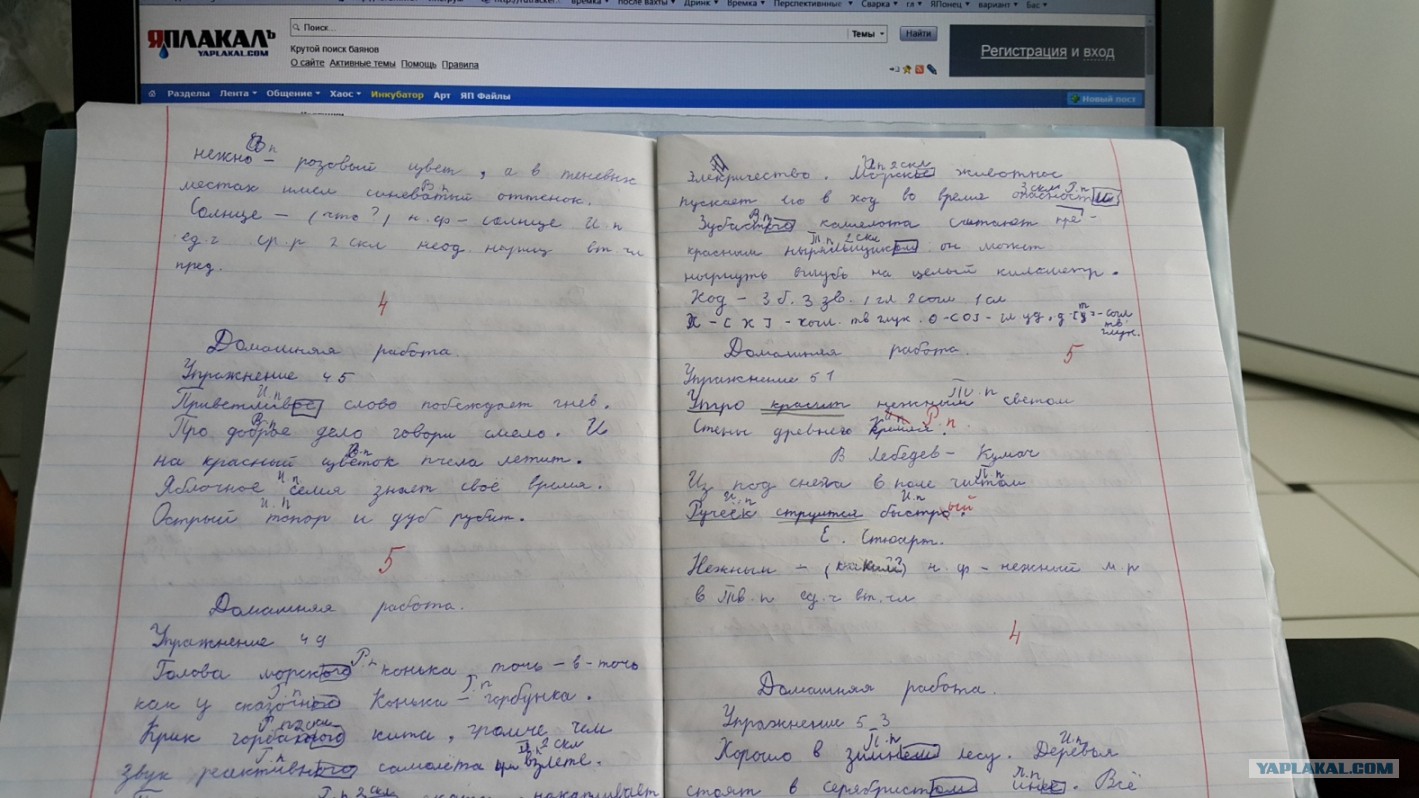 времка после вахты Дринк Времка Перспективнные Сварка гл ЯПонец вариант Бас
ЯПЛАКАЛЪ
YAPLAKAL.COM
Поиск...
Темы
Найти
Крутой поиск баянов
О сайте Активные темы Помощь Правила
Регистрация и вход
Разделы Лента Общение Хаос Инкубатор Арт ЯП Файлы
Новый пост
В.п
нежно – розовый цвет, а в теневых
В.п
местах имел синеватый оттенок.
Солнце – (что?) н.ф – солнце И.п
ед.ч ср.р 2 скл неод. нариц вт.чл
пред.
4
Домашняя работа.
Упражнение 45
И.п
Приветливое слово побеждает гнев.
В.п
Про доброе дело говори смело. И
В.п
на красный цветок пчела летит.
И.п
Яблочное семя знает своё время.
И.п
Острый топор и дуб рубит.
5
Домашняя работа.
Упражнение 49
Р.п
Голова морского конька точь-в-точь
как у сказочного Конька – горбунка.
Р.п 2 скл
Крик горбатого кита, громче чем
2 скл
звук реактивного самолёта при взлёте.
Р.п 2 скл
накапливает
электричество. Морское животное
И.п 2 скл
3 скл Р.п
пускает его в ход во время опасности
В.п
Зубастого кашелота считают пре-
Т.п 2 скл
красным ныряльщиком он может
нырнуть вглубь на целый километр.
Ход – 3 б. 3 зв. 1 гл 2 согл 1 сл
Х – [х] – согл. тв глух. о – [о] – гл уд, д – [т] – согл
тв.
глух.
Домашняя работа.
5
Упражнение 51
Тв.п
Утро красит нежным светом
Р.п
Стены древнего Кремля.
В Лебедев – Кумач
П.п
Из под снега в поле чистом
И.п И.п
Ручеёк струится быстро.ый
Е. Стюарт.
Нежным – (каким?) н.ф – нежный м.р
в Тв.п ед.ч вт.чл
4
Домашняя работа.
Упражнение 53
П.п И.п
Хорошо в зимнем лесу. Деревья
П.п
стоят в серебристом инее. Всё
YAPLAKAL.COM